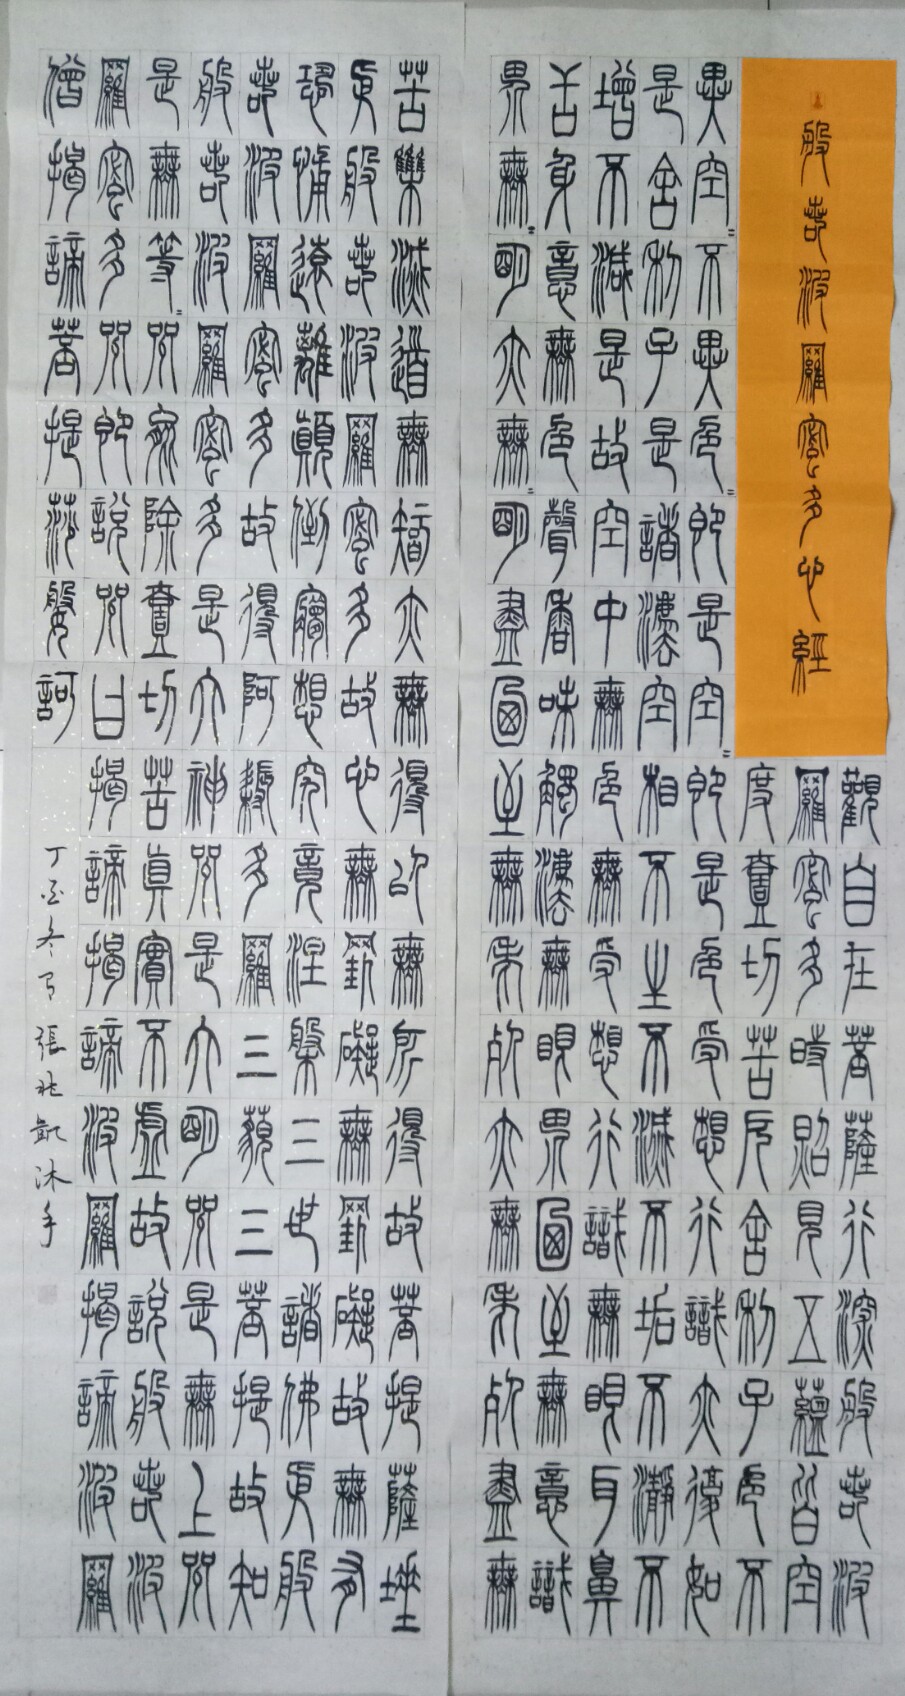 般若波羅蜜多心經
觀自在菩薩行深般若波
羅蜜多時照見五蘊皆空
度壹切苦厄舍利子色不
異空=不異色=即是空=即是色受想行識亦復如
是舍利子是諸法空相不生不滅不垢不瀞不
增不減是故空中無色無受想行識無眼耳鼻
舌身意無色聲香味觸法無眼界乃至無意識
界無=明亦無=明盡乃至無老死亦無老死盡無
苦集滅道無智亦無得以無所得故菩提薩埵
依般若波羅蜜多故心無罣礙無罣礙故無有
恐怖遠離顛倒夢想究竟涅槃三世諸佛依般
若波羅蜜多故得阿耨多羅三藐三菩提故知
般若波羅蜜多是大神咒是大明咒是無上咒
是無等=咒能除壹切苦真實不虛故說般若波
羅蜜多咒即說咒曰揭諦揭諦波羅揭諦波羅
僧揭諦菩提莎婆訶
丁酉冬月 張兆凱沐手